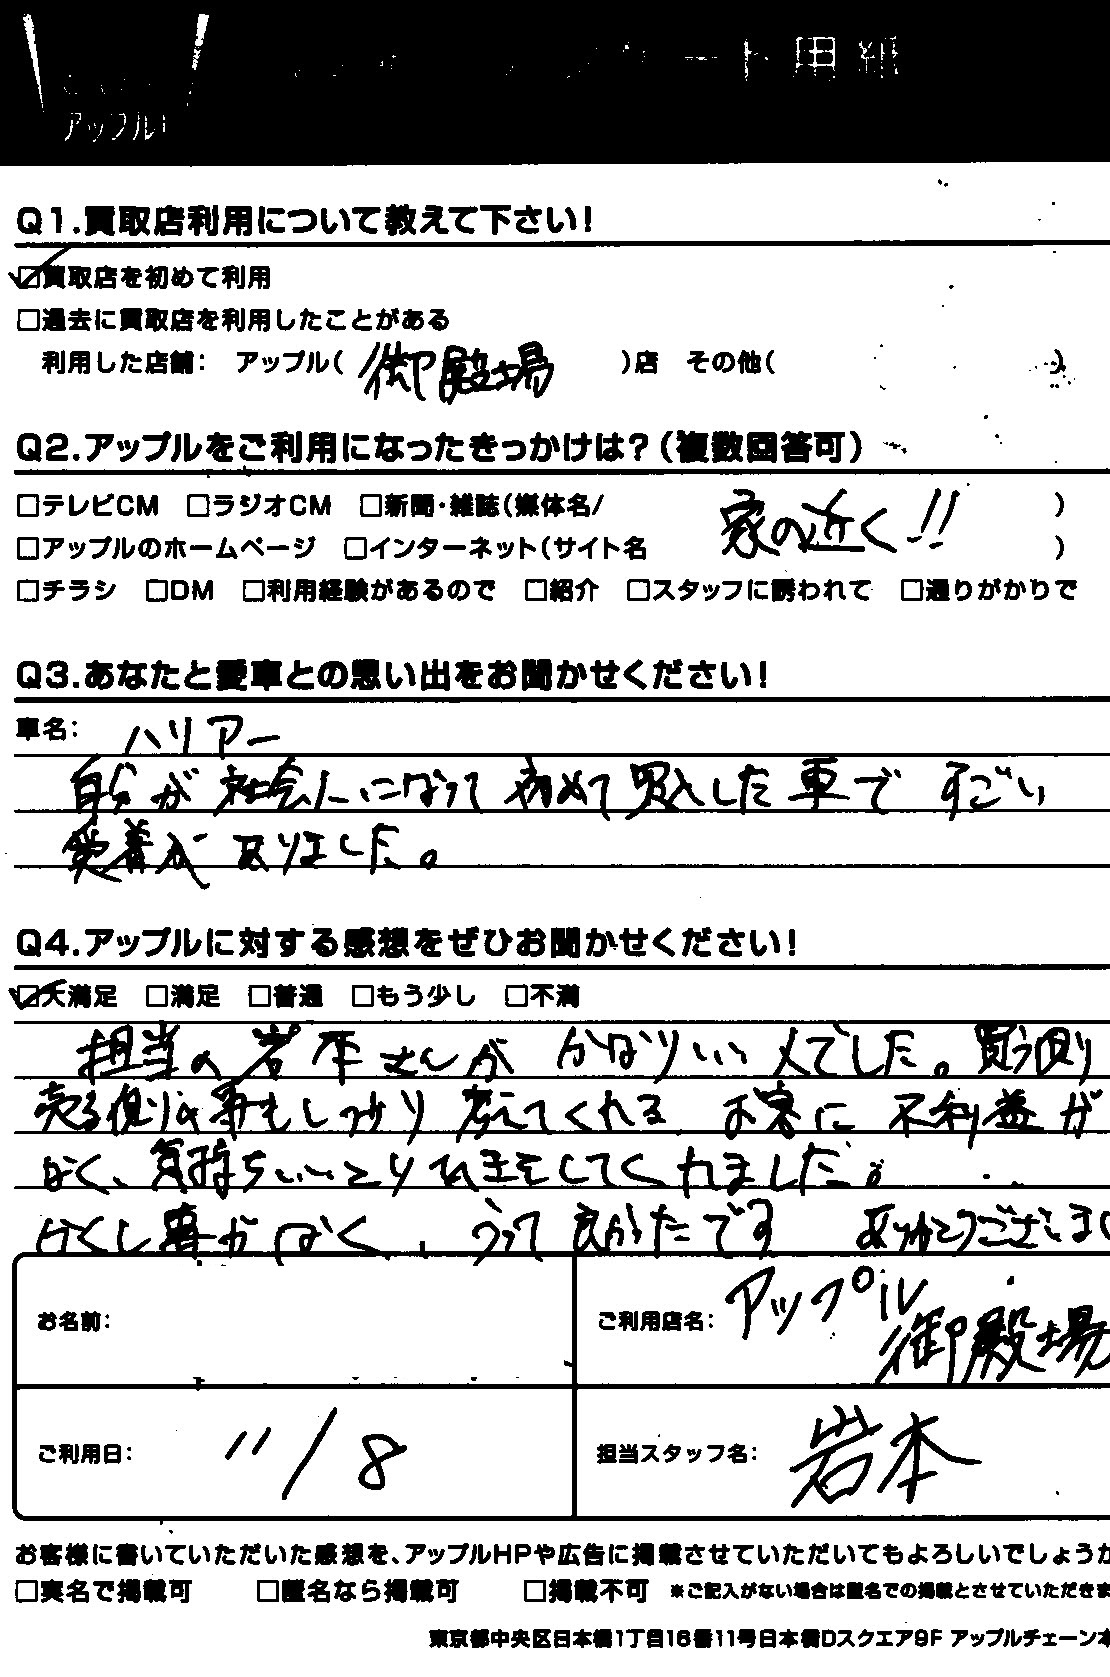 アップル
ート用紙
Q1.買取店利用について教えて下さい!
☑買取店を初めて利用
□過去に買取店を利用したことがある
利用した店舗: アップル(御殿場)店 その他( )
Q2.アップルをご利用になったきっかけは?(複数回答可)
□テレビCM □ラジオCM □新聞・雑誌(媒体名/ )
家の近く!!
□アップルのホームページ □インターネット(サイト名 )
□チラシ □DM □利用経験があるので □紹介 □スタッフに誘われて □通りがかりで
Q3.あなたと愛車との思い出をお聞かせください!
車名: ハリアー
自分が社会人になって初めて購入した車ですごい
愛着がありました。
Q4.アップルに対する感想をぜひお聞かせください!
☑大満足 □満足 □普通 □もう少し □不満
担当の岩本さんがかなりいい人でした。買う側
売る側の事もしっかり考えてくれる お客に不利益が
なく、気持ちいいとりひきをしてくれました。
かくし事がなく、うって良かたです ありがとうございまし
お名前:
ご利用店名: アップル
御殿場
ご利用日: 11/8
担当スタッフ名: 岩本
お客様に書いていただいた感想を、アップルHPや広告に掲載させていただいてもよろしいでしょうか
□実名で掲載可 □匿名なら掲載可 □掲載不可 ※ご記入がない場合は匿名での掲載とさせていただきま
東京都中央区日本橋1丁目16番11号日本橋Dスクエア9F アップルチェーン本